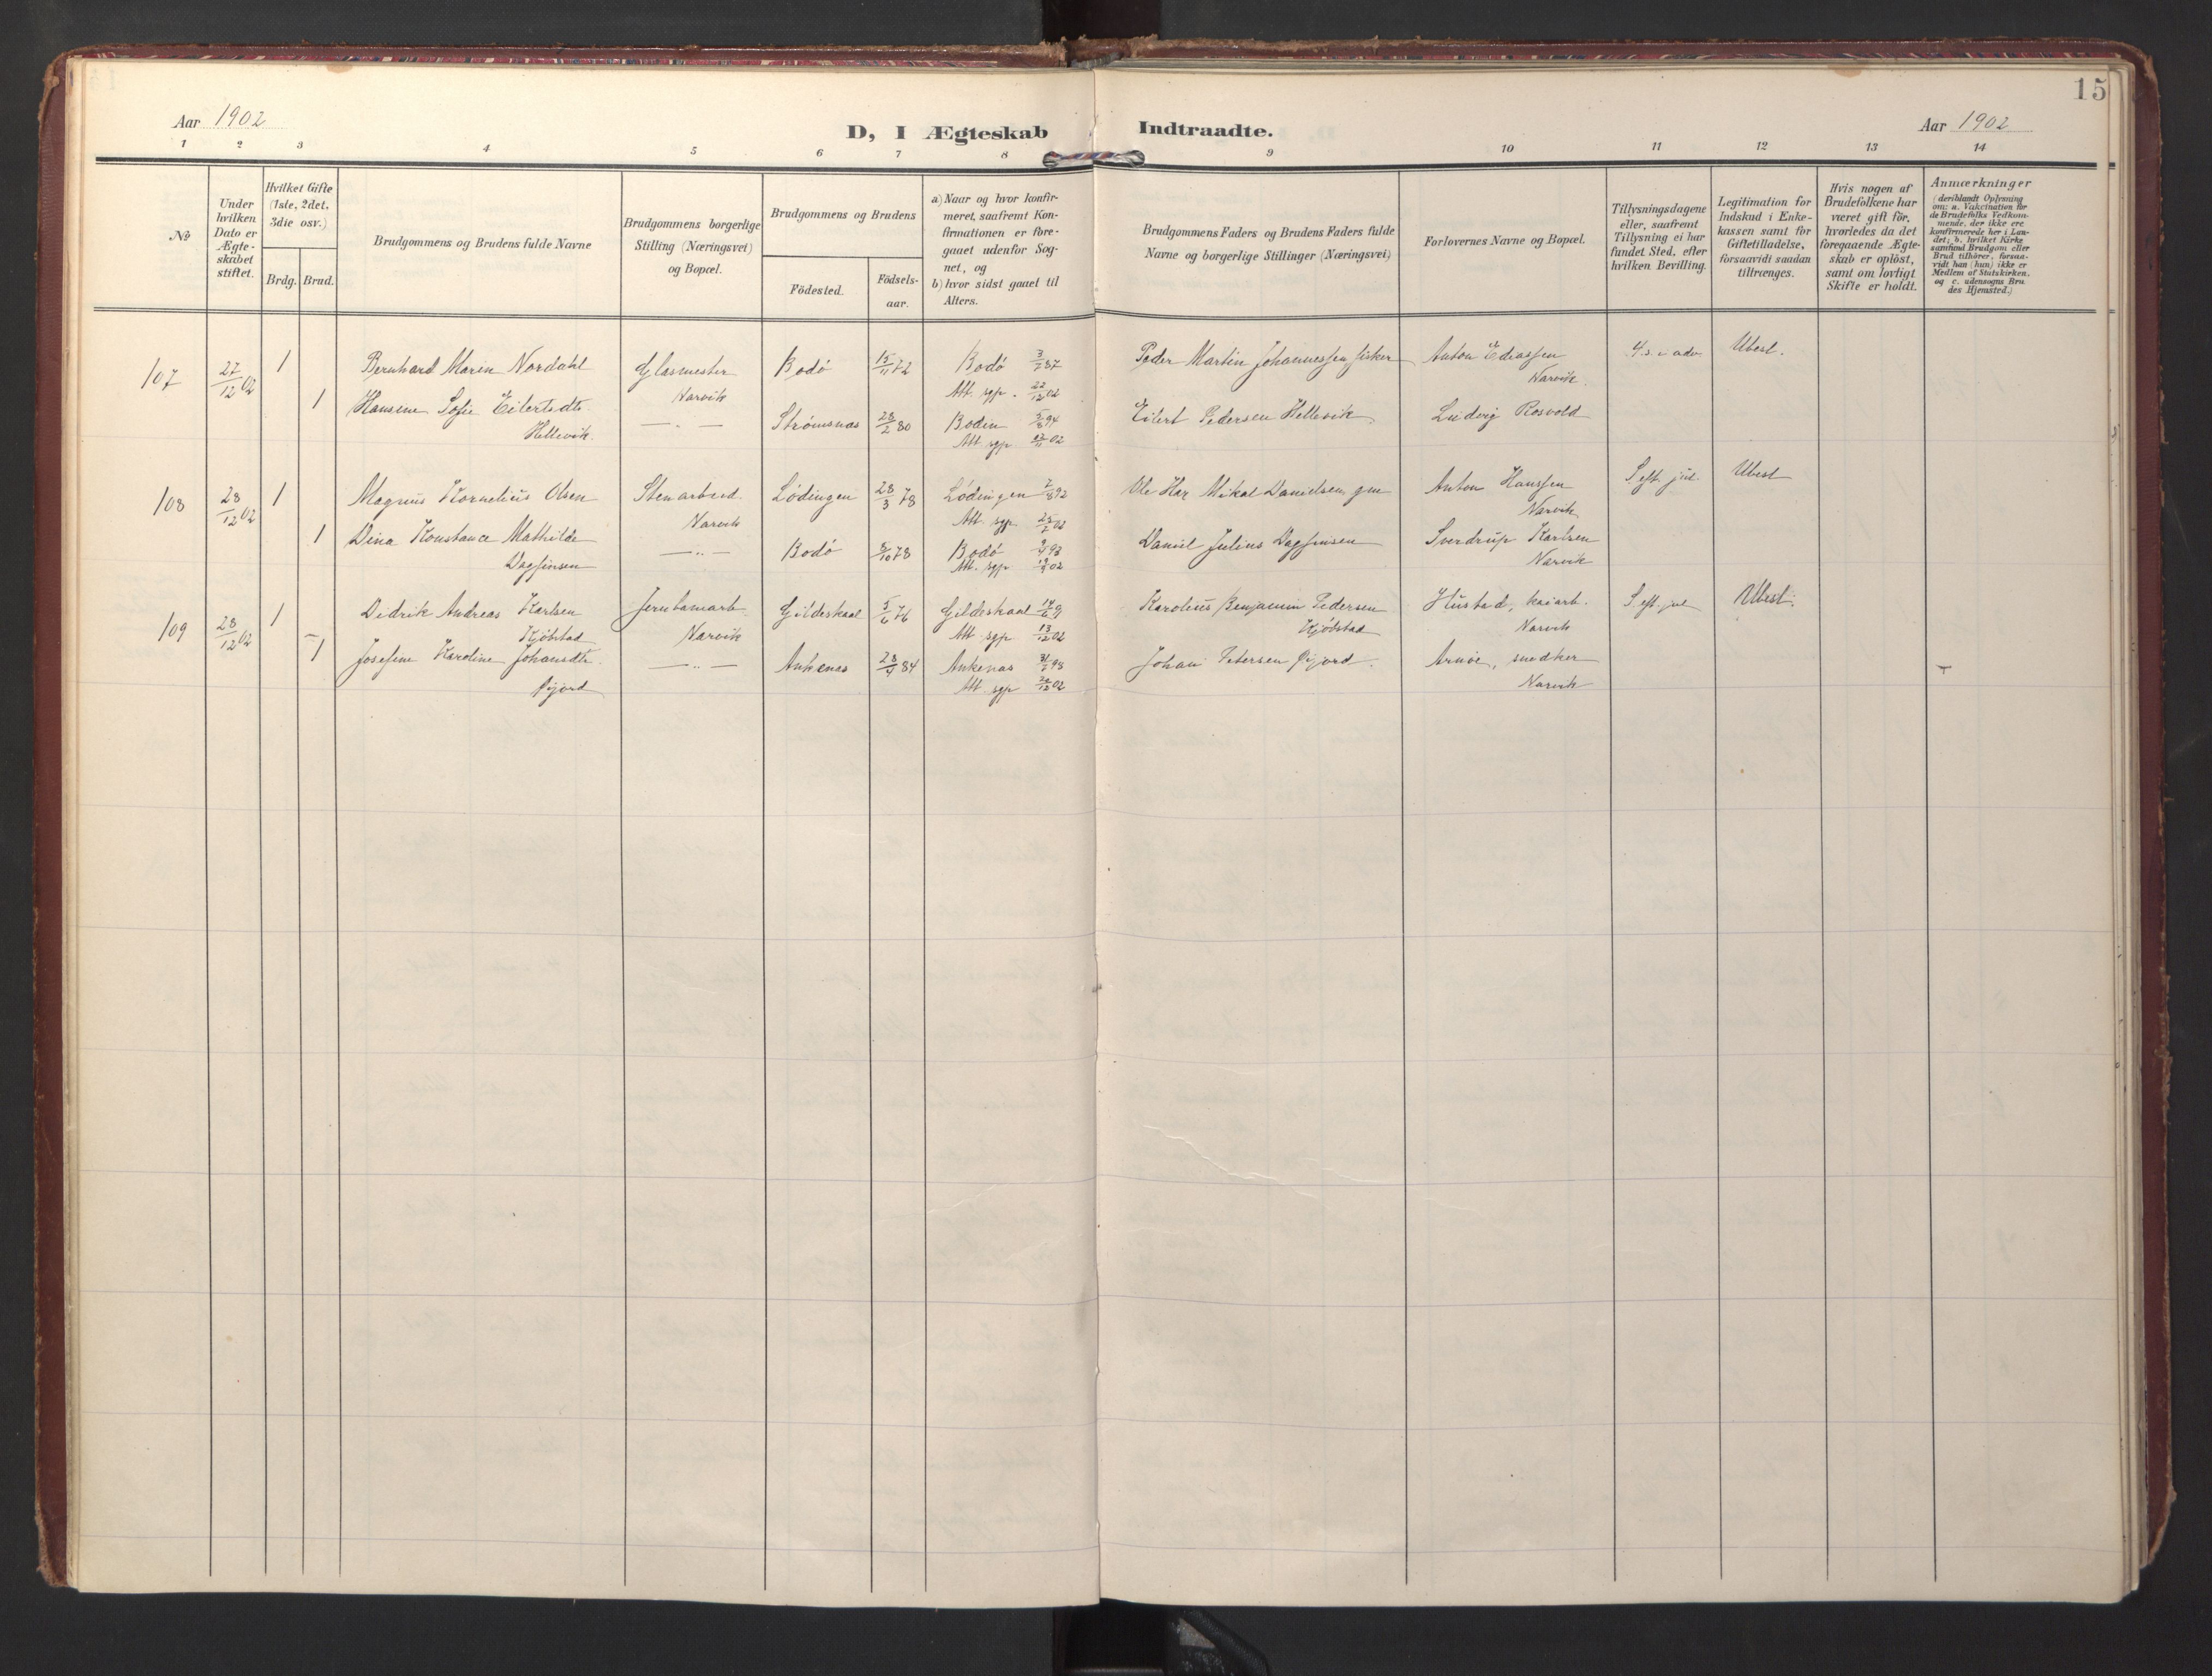 15
Aar 1902
D, I Ægteskab Indtraadte.
Aar 1902
1 2 3 4 5 6 7 8 9 10 11 12 13 14
No
Under
hvilken
Dato er
Ægte-
skabet
stiftet.
Hvilket Gifte
(1ste, 2det,
3die osv.)
Brdg. Brud.
Brudgommens og Brudens fulde Navne
Brudgommens borgerlige
Stilling (Næringsvei)
og Bopæl.
Brudgommens og Brudens
Födested.
Födsels-
aar.
a) Naar og hvor konfir-
meret, saafremt Kon-
firmationen er fore-
gaaet udenfor Sog-
net, og
b) hvor sidst gaaet til
Alters.
Brudgommens Faders og Brudens Faders fulde
Navne og borgerlige Stillinger (Næringsvei)
Forlovernes Navne og Bopæl.
Tillysningsdagene
eller, saafremt
Tillysning ei har
fundet Sted, efter
hvilken Bevilling.
Legitimation for
Indskud i Enke-
kassen samt for
Giftetilladelse,
forsaavidt saadan
tiltrænges.
Hvis nogen af
Brudefolkene har
været gift før,
hvorledes da det
foregaaende Ægte-
skab er oplöst,
samt om lovligt
Skifte er holdt.
Anmærkninger
(deriblandt Oplysning
om: a. Vakcination for
de Brudefolks Vedkom-
mende, der ikke ere
konfirmerede her i Lan-
det; b. hvilket Kirke
samfund Brudgom eller
Brud tilhører, forsaa-
vidt han (hun) ikke er
Medlem of Statskirken.
og c. udensogns Bru
des Hjemsted.)
107 27/12 02 1 Bernhard Marin Nordahl Glasmester Bodö 15/11 72 Bodö 87 Peder Martin Johannessen fisker Anton Edrassen 4. s. i adv. Ubest.
Narvik Att. sgp. 22/12 02 Narvik.
1 Hansine Sofie Eilertsdtr. — „ — Strømsnæs 28/2 80 Bodin 94 Eilert Pedersen Hellevik. Ludvig Rosvold
Hellevik. Att sgp 02
108 28/12 02 1 Magnus Kornelius Olsen Stenarbeid. Lödingen 28/3 78 Lödingen 92 Ole Har Mikal Danielsen, gm Anton Hanssen S. eft. jul. Ubest
Narvik Att. sgp. 02 Narvik
1 Dina Konstance Mathilde — „ — Bodö 8/10 78 Bodö 93 Daniel Julius Dagfinsen Sverdrup Karlsen
Dagfinsen Att. sgp 02 Narvik
109 28/12 02 1 Didrik Andreas Karlsen Jernbanearb. Gildeskaal 5/6 76 Gildeskaal Karolius Benjamin Pedersen Hustad, kaiarb. S. eft. jul Ubest.
Kjöbstad Narvik Att sgp 13/12 02 Kjöbstad Narvik
1 Josefine Karoline Johansdtr. — „ — Ankenæs 84 Ankenæs 98 Johan Petersen Öijord. Arnöe, snedker
Öijord Att sgp 02 Narvik